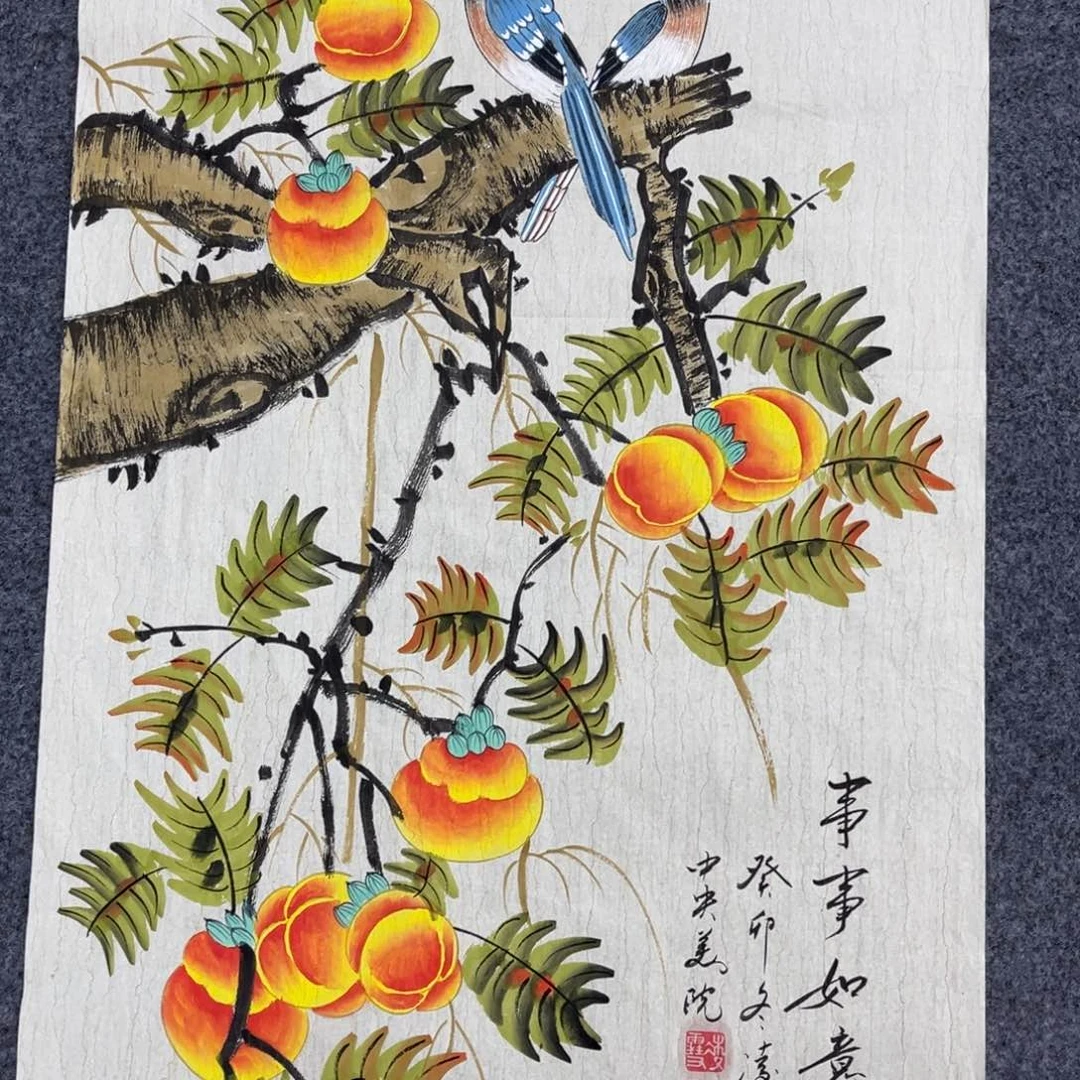 事事如意
癸卯冬
中央美院